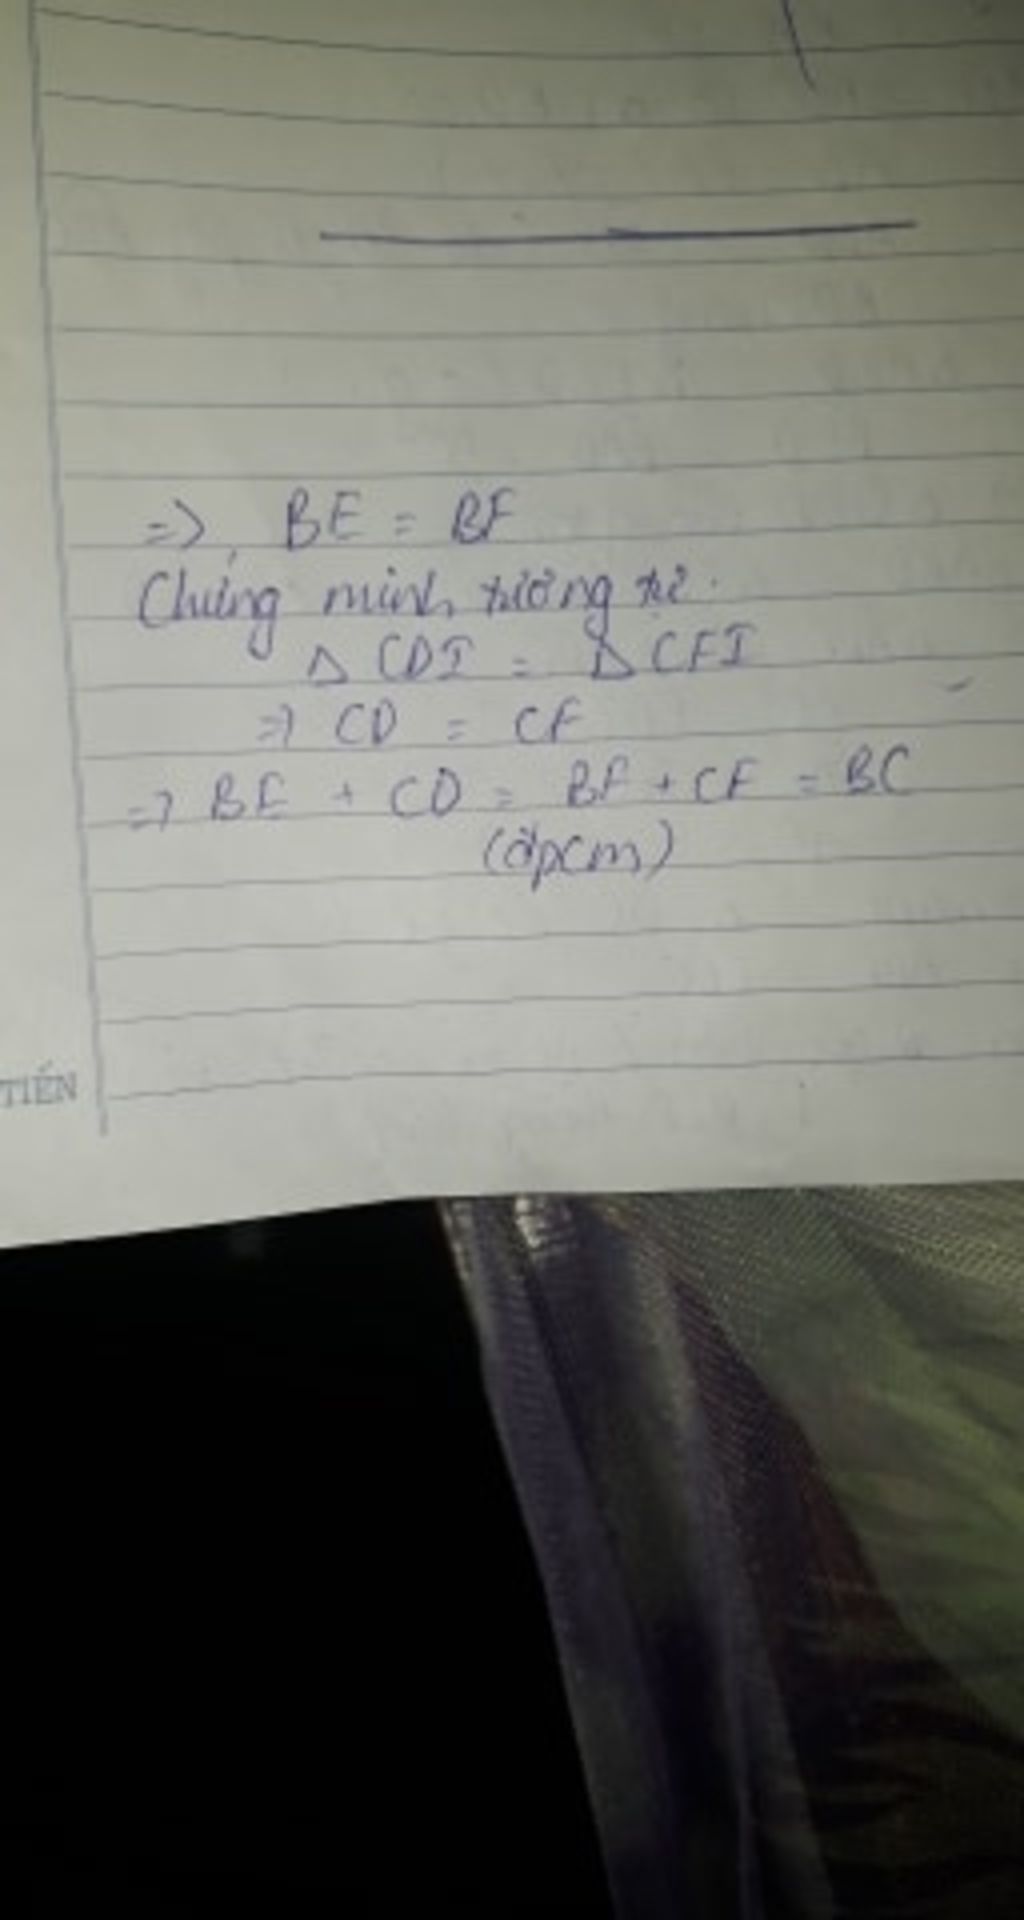 => BE = BF
Chứng minh tương tự:
Δ CDI = Δ CFI
=> CD = CF
=> BE + CD = BF + CF = BC
(đpcm)
TIẾN